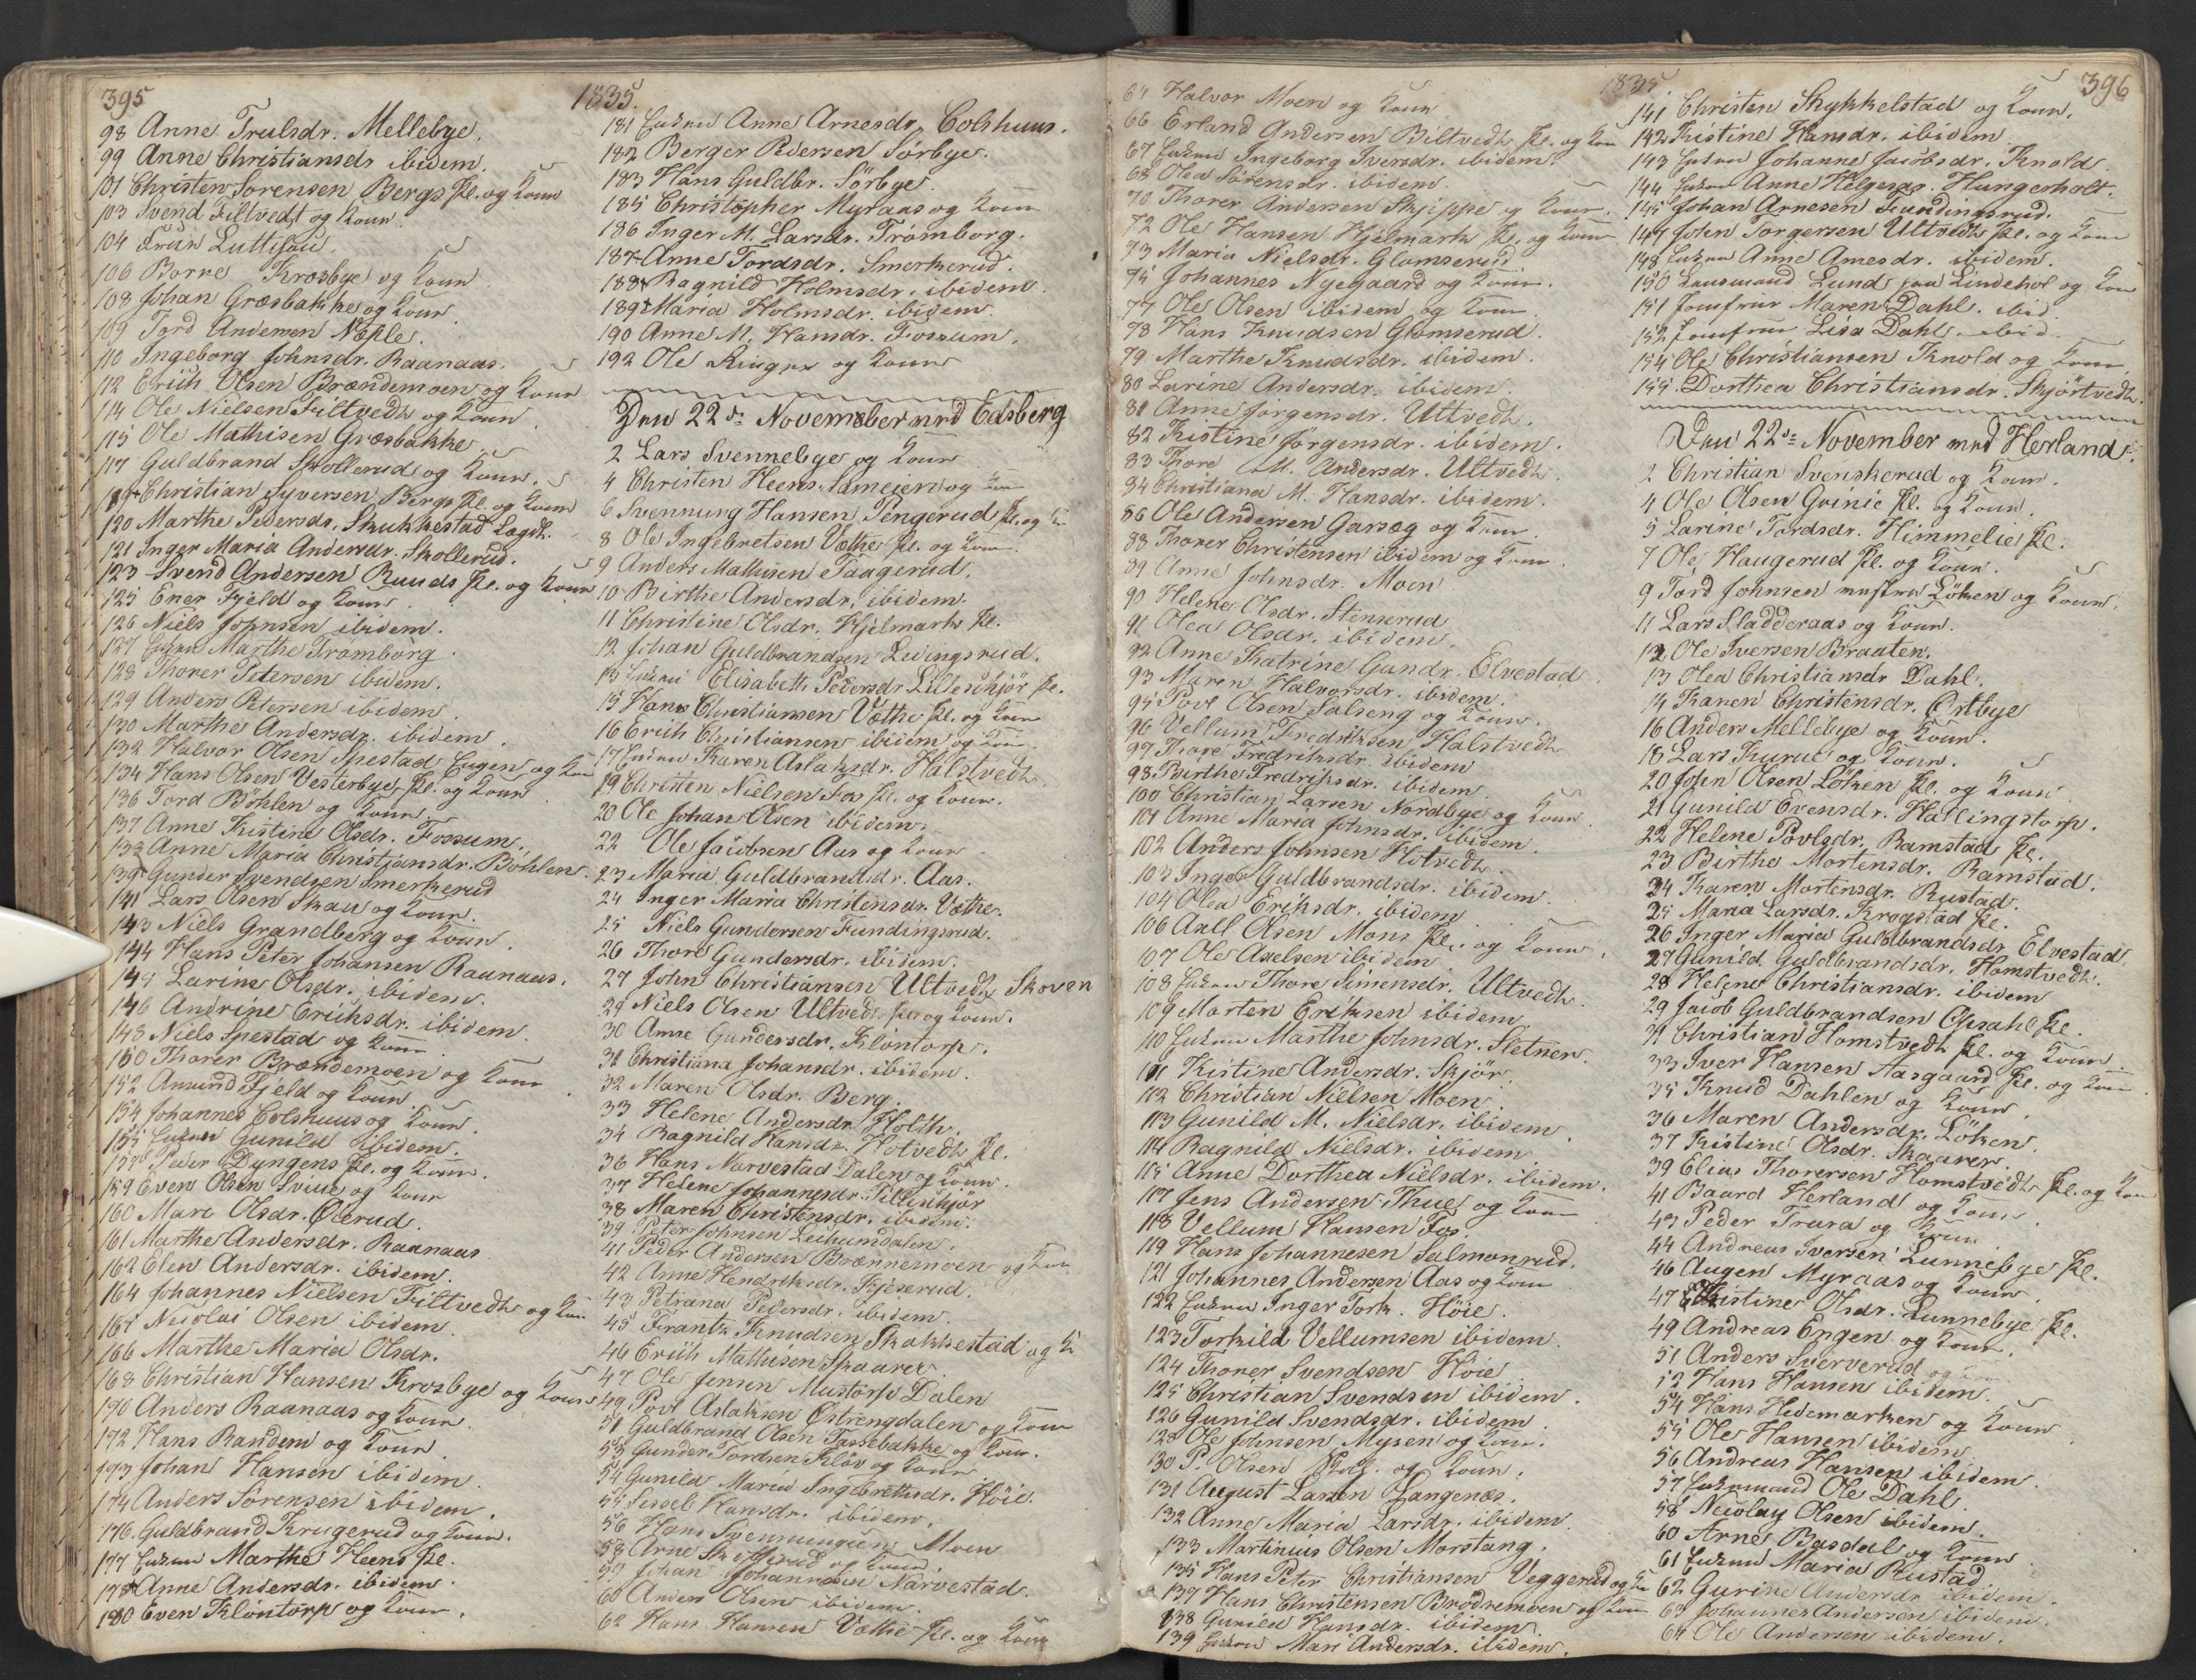 395
1835.
98 Anne Trulsdr. Mellebye.
99 Anne Christiansdr ibidem.
101 Christen Sorensen Bergs Pl. og Kone
103 Svend Filtvedt og Kone
104 Frue Luttijou
106 Borre Krosbye og Kone
108 Johan Græsbakke og Kone
109 Tord Andersen Næple.
110 Ingeborg Johnsdr. Raanaas.
112 Erich Olsen Brændemoen og Kone
114 Ole Nielsen Filtvedt og Kone
115 Ole Mathisen Græsbakke
117 Guldbrand Skollerud og Kone.
119 Christian Syversen Bergs Pl. og Kone
120 Marthe Pedersdr. Skukkestad Lagd.
121 Inger Maria Andersdr. Skollerud.
123 Svend Andersen Ruuds Pl. og Kone
125 Ener Fjeld og Kone
126 Niels Johnsen ibidem.
127 Enken Marthe Tromborg.
128 Thorer Petersen ibidem.
129 Anders Petersen ibidem
130 Marthe Andersdr. ibidem
132 Halvor Olsen Spestad Eugen og Kone
134 Hans Olsen Vesterbye Pl. og Kone
136 Tord Böhlen og Kone
137 Anne Kistine Olsdr. Fossum.
138 Anne Maria Christiansdr. Böhlen.
139 Gunder Svendsen Smerkerud
141 Lars Olsen Skau og Kone.
143 Niels Grandberg og Kone.
144 Hans Peter Johansen Raanaas.
145 Larine Olsdr. ibidem.
146 Andrine Erichsdr. ibidem
148 Niels Spestad og Kone
150 Thorer Brændemoen og Kone
152 Amund Fjeld og Kone
154 Johannes Colshuus og Kone.
155 Enken Gunild ibidem.
157 Peder Dyngens Pl. og Kone.
159 Even Olsen Sviue og Kone
160 Mari Olsdr. Öierud.
161 Marthe Andersdr. Raanaas
162 Elen Andersdr. ibidem.
164 Johannes Nielsen Filtvedt og Kone
165 Nicolai Olsen ibidem
166 Marthe Maria Olsdr.
168 Christian Hansen Krosbye og Kone
170 Anders Raanaas og Kone
172 Hans Randem og Kone
173 Johan Hansen ibidem
174 Anders Sörensen ibidem.
176 Guldbrand Krugerud og Kone.
177 Enken Marthe Heens Pl.
178 Anne Andersdr. ibidem.
180 Even Klöntorp og Kone.
181 Enken Anne Arnesdr. Colshuus.
182 Berger Pedersen Sörbye.
183 Hans Guldbr. Sörbye.
185 Christopher Myraas og Kone
186 Inger M. Larsdr. Trömborg.
187 Anne Tordsdr. Smerkerud.
188 Ragnild Holmsdr. ibidem
189 Maria Holmsdr. ibidem.
190 Anne M. Hansdr. Fossum.
192 Ole Ringer og Kone
Den 22de November ved Edsberg
2 Lars Svennebye og Kone
4 Christen Heens Sameien og Kone
6 Svennung Hansen Pengerud Pl. og K
8 Ole Ingebretsen Væthe Pl. og Kone.
9 Anders Mathisen Taugerud.
10 Birthe Andersdr. ibidem.
11 Christine Olsdr. Hjelmark Pl.
12 Johan Guldbrandsen Levingsrud.
13 Enken Elisabeth Pedersdr Lilleskjör Pl.
15 Hans Christiansen Væthe Pl. og Kone
16 Erich Christiansen ibidem og Kone
17 Enken Karen Aslaksdr. Halstvedt
19 Christen Nielsen Fos Pl. og Kone.
20 Ole Johan Olsen ibidem.
22 Ole Jacobsen Aas og Kone
23 Maria Guldbrandsdr. Aas.
24 Inger Maria Christensdr. Væthe.
25 Niels Gundersen Fundingsrud.
26 Thore Gundersdr. ibidem.
27 John Christiansen Ultvedt Skoven
29 Niels Olsen Ultvedt Pl. og Kone.
30 Anne Gundersdr. Klöntorp.
31 Christiana Johansdr. ibidem.
32 Maren Olsdr. Berg.
33 Helene Andersdr. Holth.
34 Ragnild Hansdr. Hotvedt Pl.
36 Hans Narvestad Dalen og Kone.
37 Helene Johannesdr. Lilleskjör
38 Maren Christensdr. ibidem.
39 Peter Johnsen Leikumsdalen.
41 Peder Andersen Brennemoen og Kone
42 Anne Hendriksdr. Kjeserud.
43 Petrana Pedersdr. ibidem.
45 Frantz Knudsen Skakkestad og K
46 Erich Mathisen Skaarer
47 Ole Jensen Mustorp Dalen
49 Povl Aslaksen Östrengdalen og Kone
51 Guldbrand Olsen Tassebakke og Kone.
53 Gunder Tordsen Klöv og Kone
54 Gunild Maria Ingebretsdr. Höie.
55 Sissel Hansdr. ibidem.
56 Hans Svennungsen Moen
58 Arne Skofferud og Kone
59 Johan Johannesen Narvestad.
60 Anders Olsen ibidem.
62 Hans Hansen Væthe Pl. og Kone
1835
396
64 Halvor Moen og Kone
66 Erland Andersen Biltvedt Pl. og Kone
67 Enken Ingeborg Iversdr. ibidem.
68 Olea Sörensdr. ibidem.
70 Thorer Andersen Skjippe og Kone.
72 Ole Hansen Hjelmark Pl. og Kone
73 Maria Nielsdr. Glomserud
75 Johannes Nyegaard og Kone.
77 Ole Olsen ibidem og Kone
78 Hans Knudsen Glomserud.
79 Marthe Knudsdr. ibidem.
80 Larine Andersdr. ibidem
81 Anne Jörgensdr. Ultvedt.
82 Kistine Jörgensdr. ibidem.
83 Thore M. Andersdr. Ultvedt.
84 Christiana M. Hansdr. ibidem.
86 Ole Andersen Garseg og Kone
88 Thorer Christensen ibidem og Kone
89 Anne Johnsdr. Moen
90 Helene Olsdr. Stenserud
91 Olea Olsdr. ibidem.
92 Anne Katrine Gundr. Elvestad
93 Maren Halvorsdr. ibidem.
95 Povl Olsen Salseng og Kone.
96 Vellum Fredriksen Halstvedt
97 Thore Fredriksdr. ibidem
98 Birthe Fredriksdr. ibidem.
100 Christian Larsen Nordbye og Kone
101 Anne Maria Johnsdr. ibidem
102 Anders Johnsen Hotvedt.
103 Inger Guldbrandsdr. ibidem.
104 Olea Eriksdr. ibidem
106 Axell Olsen Mons Pl. og Kone
107 Ole Axelsen ibidem
108 Enken Thore Simensdr. Ultvedt.
109 Morten Eriksen ibidem
110 Enken Marthe Johnsdr. Sletner.
111 Kistine Andersdr. Skjör.
112 Christian Nielsen Moen
113 Gunild M. Nielsdr. ibidem
114 Ragnild Nielsdr. ibidem
115 Anne Dorthea Nielsdr. ibidem.
117 Jens Andersen Thue og Kone
118 Vellum Hansen Fos.
119 Hans Johannesen Salmonrud.
121 Johannes Andersen Aas og Kone
122 Enken Inger Tork. Höie.
123 Torkild Vellumsen ibidem
124 Thorer Svendsen Höie
125 Christian Svendsen ibidem.
126 Gunild Svendsdr. ibidem
128 Ole Johnsen Mysen og Kone.
130 P. Olsen og Kone.
131 August Larsen Langenæs.
132 Anne Maria Larsdr. ibidem
133 Martinius Olsen Morstang.
135 Hans Peter Christiansen Veggerud og K
137 Hans Christensen Brödremoen og Kone
138 Gunild Hansdr. ibidem.
139 Enken Mari Andersdr. ibidem.
141 Christen Skykkelstad og Kone.
142 Kistine Hansdr. ibidem
143 Enken Johanne Jacobsdr. Knold
144 Enken Anne Helgesdr. Hungerholt.
145 Johan Arnesen Fundingsrud.
147 John Torgersen Ultvedt Pl. og Kone
148 Enken Anne Arnesdr. ibidem.
150 Lensmand Lund paa Lindehol og Kone
151 Jomfrue Maren Dahl. ibid.
152 Jomfrue Lisa Dahl. ibid.
154 Ole Christiansen Knold og Kone
155 Dorthea Christiansdr. Skjörtvedt.
Den 22de November ved Herland.
2 Christian Svenskerud og Kone.
4 Ole Olsen Gvinie Pl. og Kone.
5 Larine Tordsdr. Himmelie Pl.
7 Ole Haugerud Pl. og Kone.
9 Tord Johnsen Löken og Kone.
11 Lars Sladderaas og Kone.
12 Ole Iversen Braaten.
13 Olea Christiansdr Dahl.
14 Karen Christensdr. Östbye
16 Anders Mellebye og Kone.
18 Lars Kurud og Kone.
20 John Olsen Löken Pl. og Kone
21 Gunild Evensdr. Hallingstorp.
22 Helene Povlsdr. Ramstad Pl.
23 Birthe Mortensdr. Ramstad.
24 Karen Mortensdr. Rustad.
25 Maria Larsdr. Krogstad Pl.
26 Inger Maria Guldbrandsdr Elvestad
27 Gunild Guldbrandsdr. Homstvedt.
28 Helene Christiansdr. ibidem
29 Jacob Guldbrandsen Opsahl Pl.
31 Christian Homstvedt Pl. og Kone
33 Iver Hansen Aasgaard Pl. og Kone
35 Knud Dahlen og Kone
36 Maren Andersdr. Löken
37 Kistine Olsdr. Skaarer.
39 Elias Thorersen Homstvedt Pl. og Kone
41 Baard Herland og Kone.
43 Peder Trara og Kone
44 Andreas Iversen Lunnebye Pl.
46 Augen Myraas og Kone
47 Christine Olsdr. Lunnebye Pl.
49 Andreas Engen og Kone.
51 Anders Sververud og Kone
52 Hans Hansen ibidem.
54 Hans Hedemarken og Kone
55 Ole Hansen ibidem
56 Andreas Hansen ibidem
57 Enkemand Ole Dahl.
58 Nicolay Olsen ibidem.
60 Arne Basdal og Kone
61 Enken Maria Rustad
62 Gurine Andersdr. ibidem.
63 Johannes Andersen ibidem.
64 Ole Andersen ibidem.